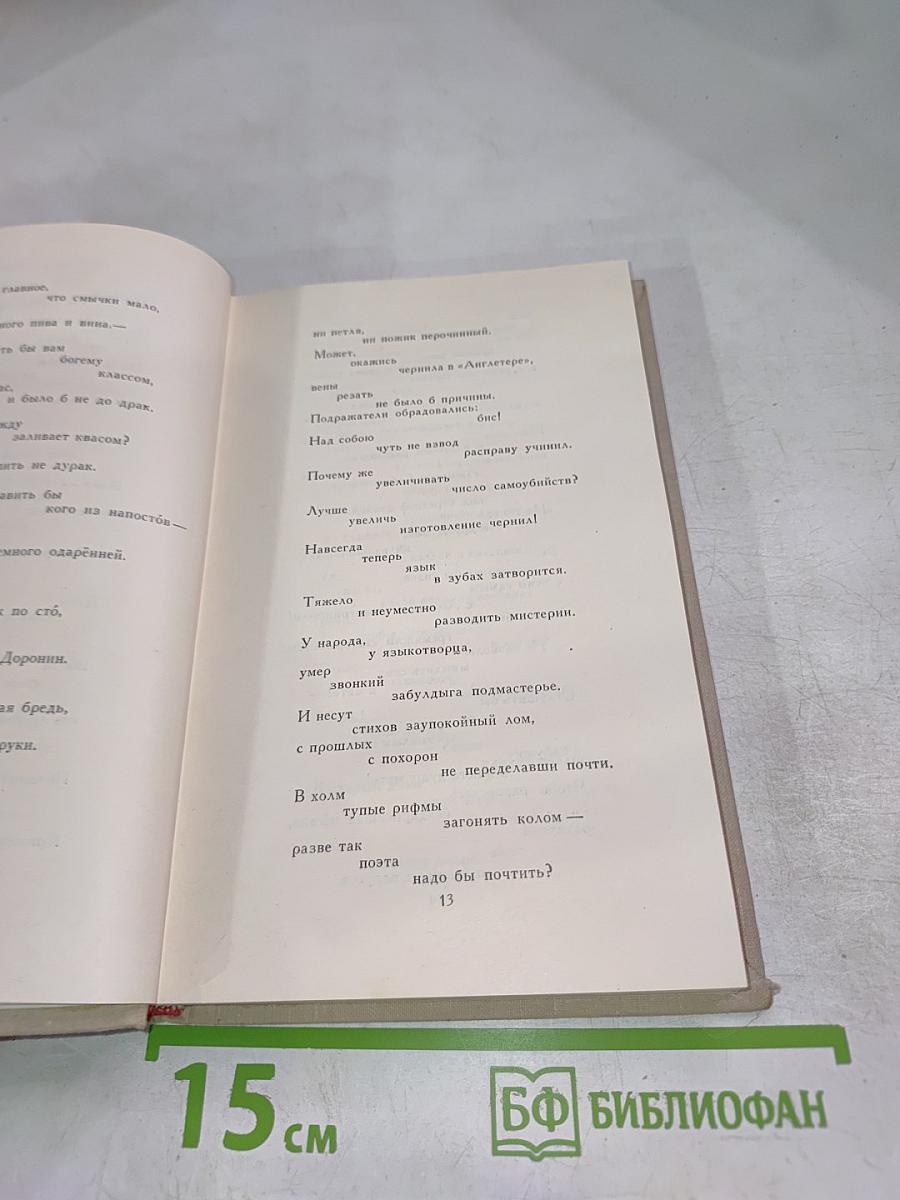 главное,
что смычки мало,
ного пива и вина.—
ть бы вам
богему
классом,
ас,
и было б не до драк.
жду
заливает квасом?
пить не дурак.
авить бы
кого из напосто́в —
емного одарённей.
к по сто́,
Доронин.
ая бредь,
руки.
ни петля,
ни ножик перочинный.
Может,
окажись
чернила в «Англетере»,
вены
резать
не было б причины.
Подражатели обрадовались:
бис!
Над собою
чуть не взвод
расправу учинил.
Почему же
увеличивать
число самоубийств?
Лучше
увеличь
изготовление чернил!
Навсегда
теперь
язык
в зубах затворится.
Тяжело
и неуместно
разводить мистерии.
У народа,
у языкотворца,
умер
звонкий
забулдыга подмастерье.
И несут
стихов заупокойный лом,
с прошлых
с похорон
не переделавши почти.
В холм
тупые рифмы
загонять колом —
разве так
поэта
надо бы почтить?
13
15 см
БФ БИБЛИОФАН